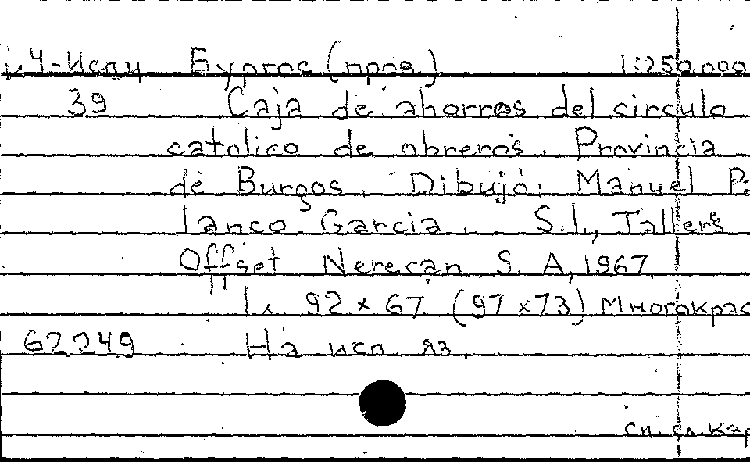 4-Испи Бургос (пров.) 1:250.000
39 Caja de ahorros del circulo
catolico de obreros. Provincia
de Burgos. Dibujó: Manuel P
lanco Garcia. S.l., Tallers
Offset Nerecan S. A, 1967
1 л. 92 x 67 (97 x 73) Многокрас
62249 На исп яз.
Сп. сл. кар